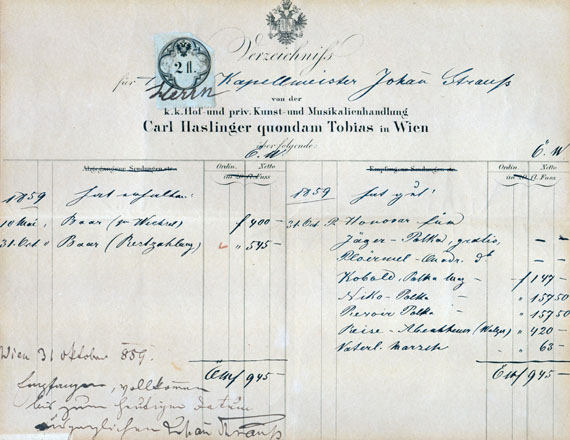 Verzeichniß
2 fl.
für Herrn Kapellmeister Johan̅ Strauß
von der
k.k. Hof- und priv. Kunst- und Musikalienhandlung
Carl Haslinger quondam Tobias in Wien
über folgende:
Ö.W Ö.W
Abgegangene Sendungen etc. Ordin. Netto Empfang von Sendungen etc. Ordin. Netto
im 20 fl. Fuss im 20 fl. Fuss
1859 hat erhalten: 1859 hat gut:
10 Mai Baar f 400 – 31. Oct. P. Honorar für
31. Oct. " Baar (Restzahlung) " 545 – Jäger-Polka, gratis, – –
Ploërmel-Quadr. dto – –
Kobold, Polka Maz – f 147 –
Niko-Polka – " 157 50
Polka – " 157 50
Reise-Abentheuer (Walzer) " 420 –
Vaterl. Marsch " 63 –
Ö.W f 945 – Ö.W f 945 –
Wien 31 Oktober 859.
Empfangen, vollkommen
bis zum heutigen Datum
ausgeglichen Johan̅ Strauß